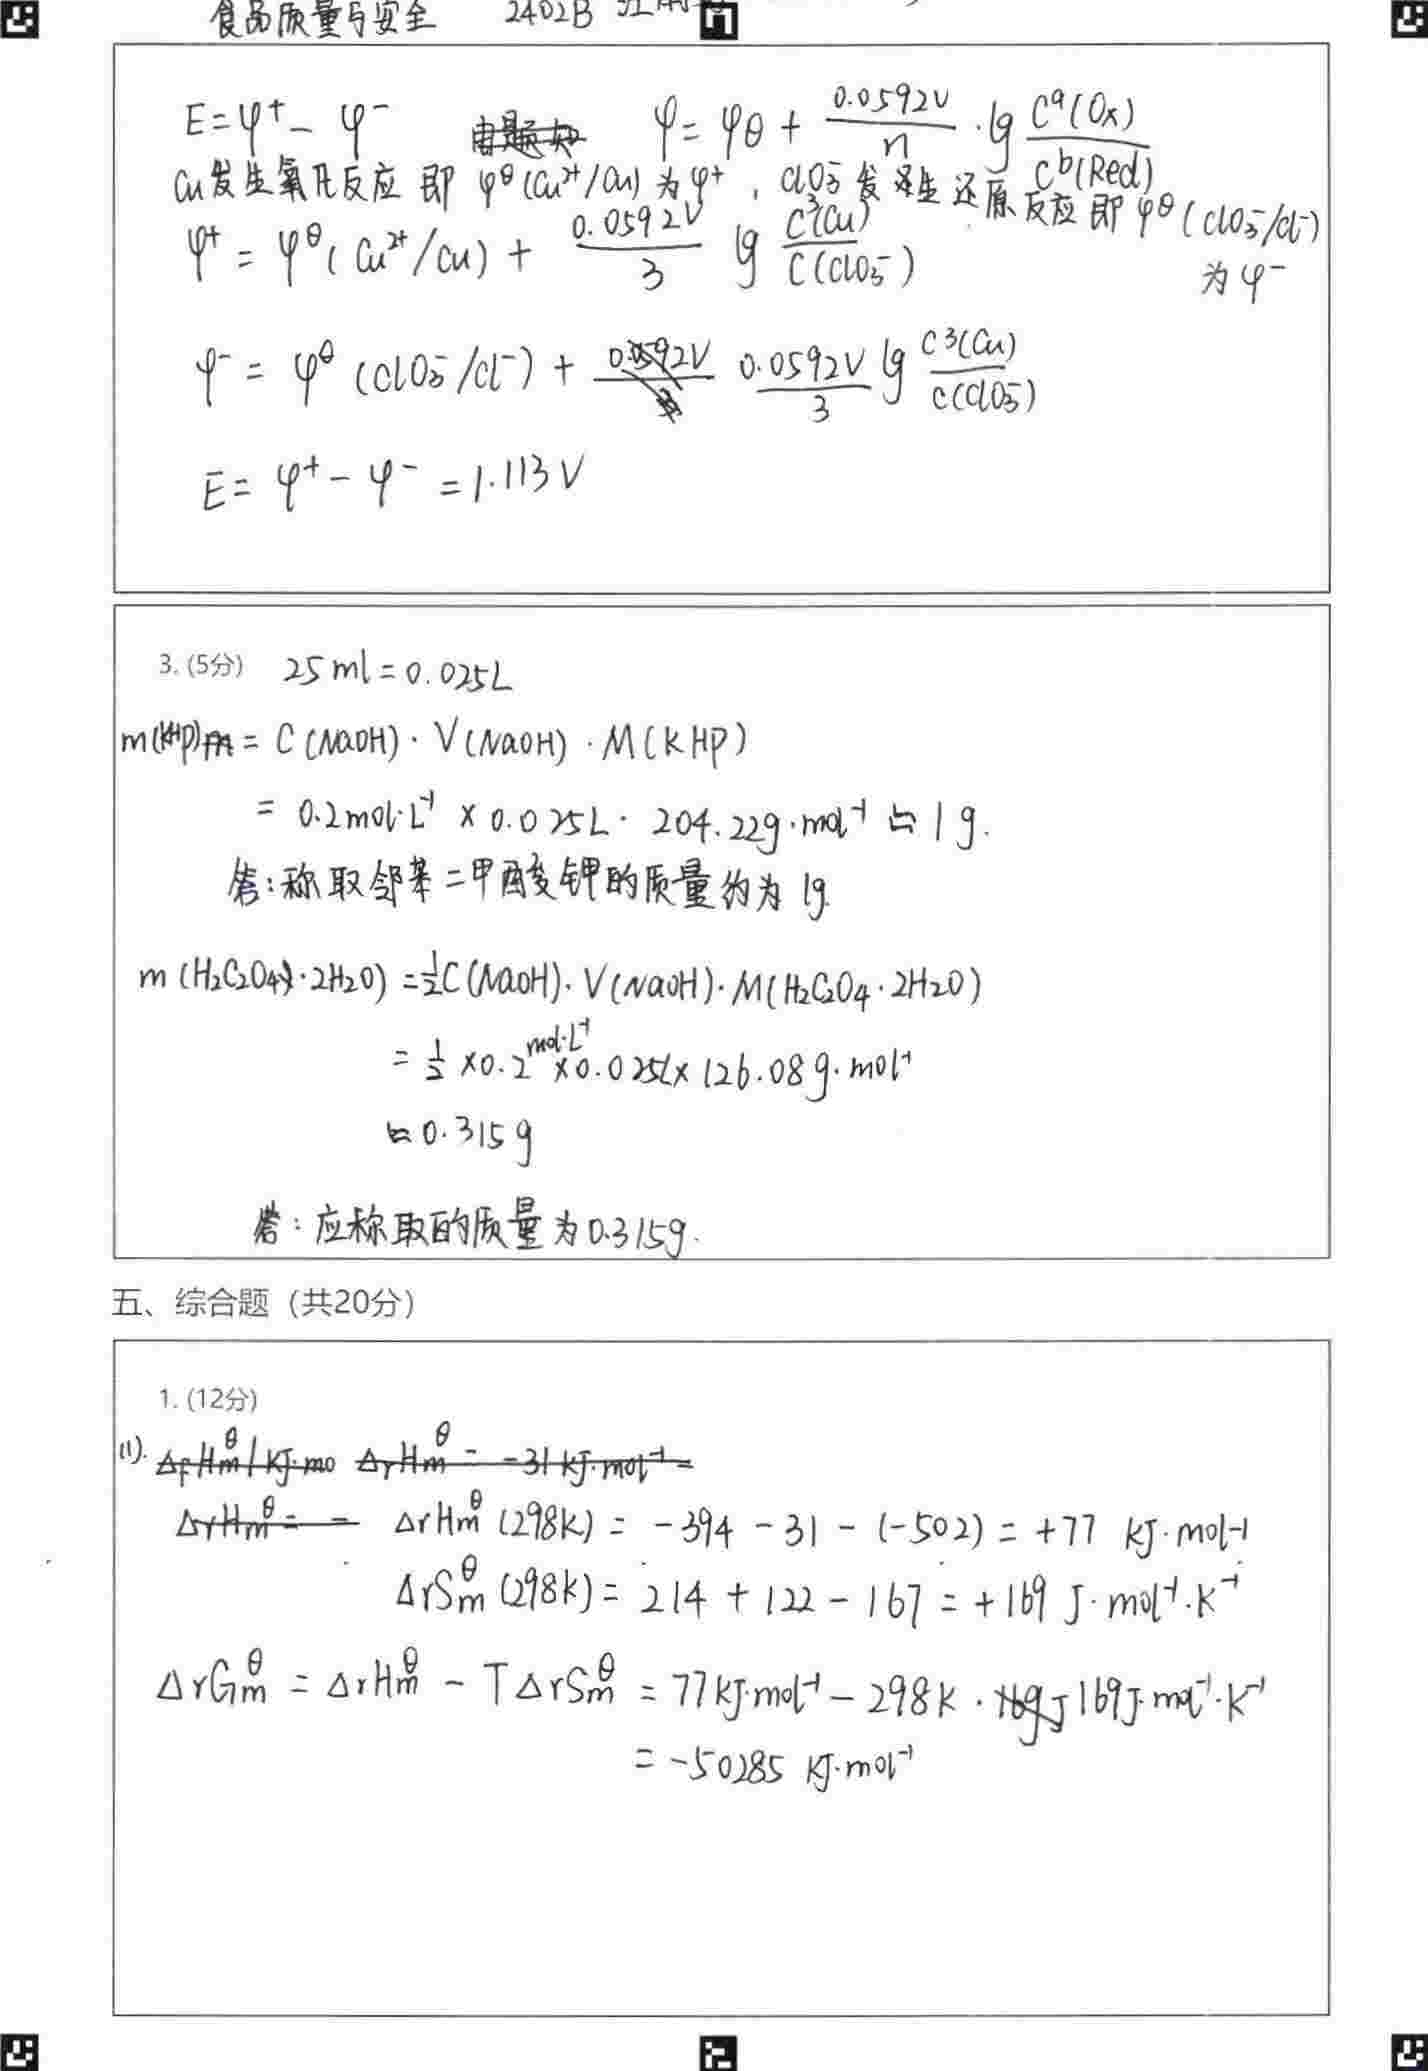 食品质量与安全 2402B
E=φ⁺- φ⁻ φ= φθ + 0.0592V/n ·lg Cᵃ(Ox)/Cᵇ(Red)
Cu发生氧化反应 即 φᶿ(Cu²⁺/Cu)为φ⁺，ClO₃⁻发生还原反应即φᶿ(ClO₃⁻/Cl⁻)
为φ⁻
φ⁺ = φᶿ(Cu²⁺/Cu) + 0.0592V/3 lg C³(Cu)/C(ClO₃⁻)
φ⁻ = φᶿ (ClO₃⁻/Cl⁻) + 0.0592V/3 lg C³(Cu)/C(ClO₃⁻)
E= φ⁺- φ⁻ =1.113V
3. (5分) 25ml=0.025L
m(KHP) = C(NaOH)·V(NaOH)·M(KHP)
= 0.2mol·L⁻¹ × 0.025L· 204.22g·mol⁻¹ ≒ 1g.
答:称取邻苯二甲酸钾的质量约为 1g.
m (H₂C₂O₄·2H₂O) =½C(NaOH)·V(NaOH)·M(H₂C₂O₄·2H₂O)
= ½ ×0.2mol·L⁻¹×0.025L×126.08g·mol⁻¹
≈0.315g
答：应称取的质量为0.315g.
五、综合题（共20分）
1. (12分)
(1). ΔfHmᶿ/kJ·mo ΔrHmᶿ = -31kJ·mol⁻¹=
ΔrHmᶿ= - ΔrHmᶿ(298K) = -394 -31 - (-502) = +77 kJ·mol-1
ΔrSmᶿ(298K)= 214 + 122 - 167 = +169 J·mol⁻¹·K⁻¹
ΔrGmᶿ = ΔrHmᶿ - TΔrSmᶿ = 77kJ·mol⁻¹- 298K · 169J·mol⁻¹·K⁻¹
= -50285 kJ·mol⁻¹